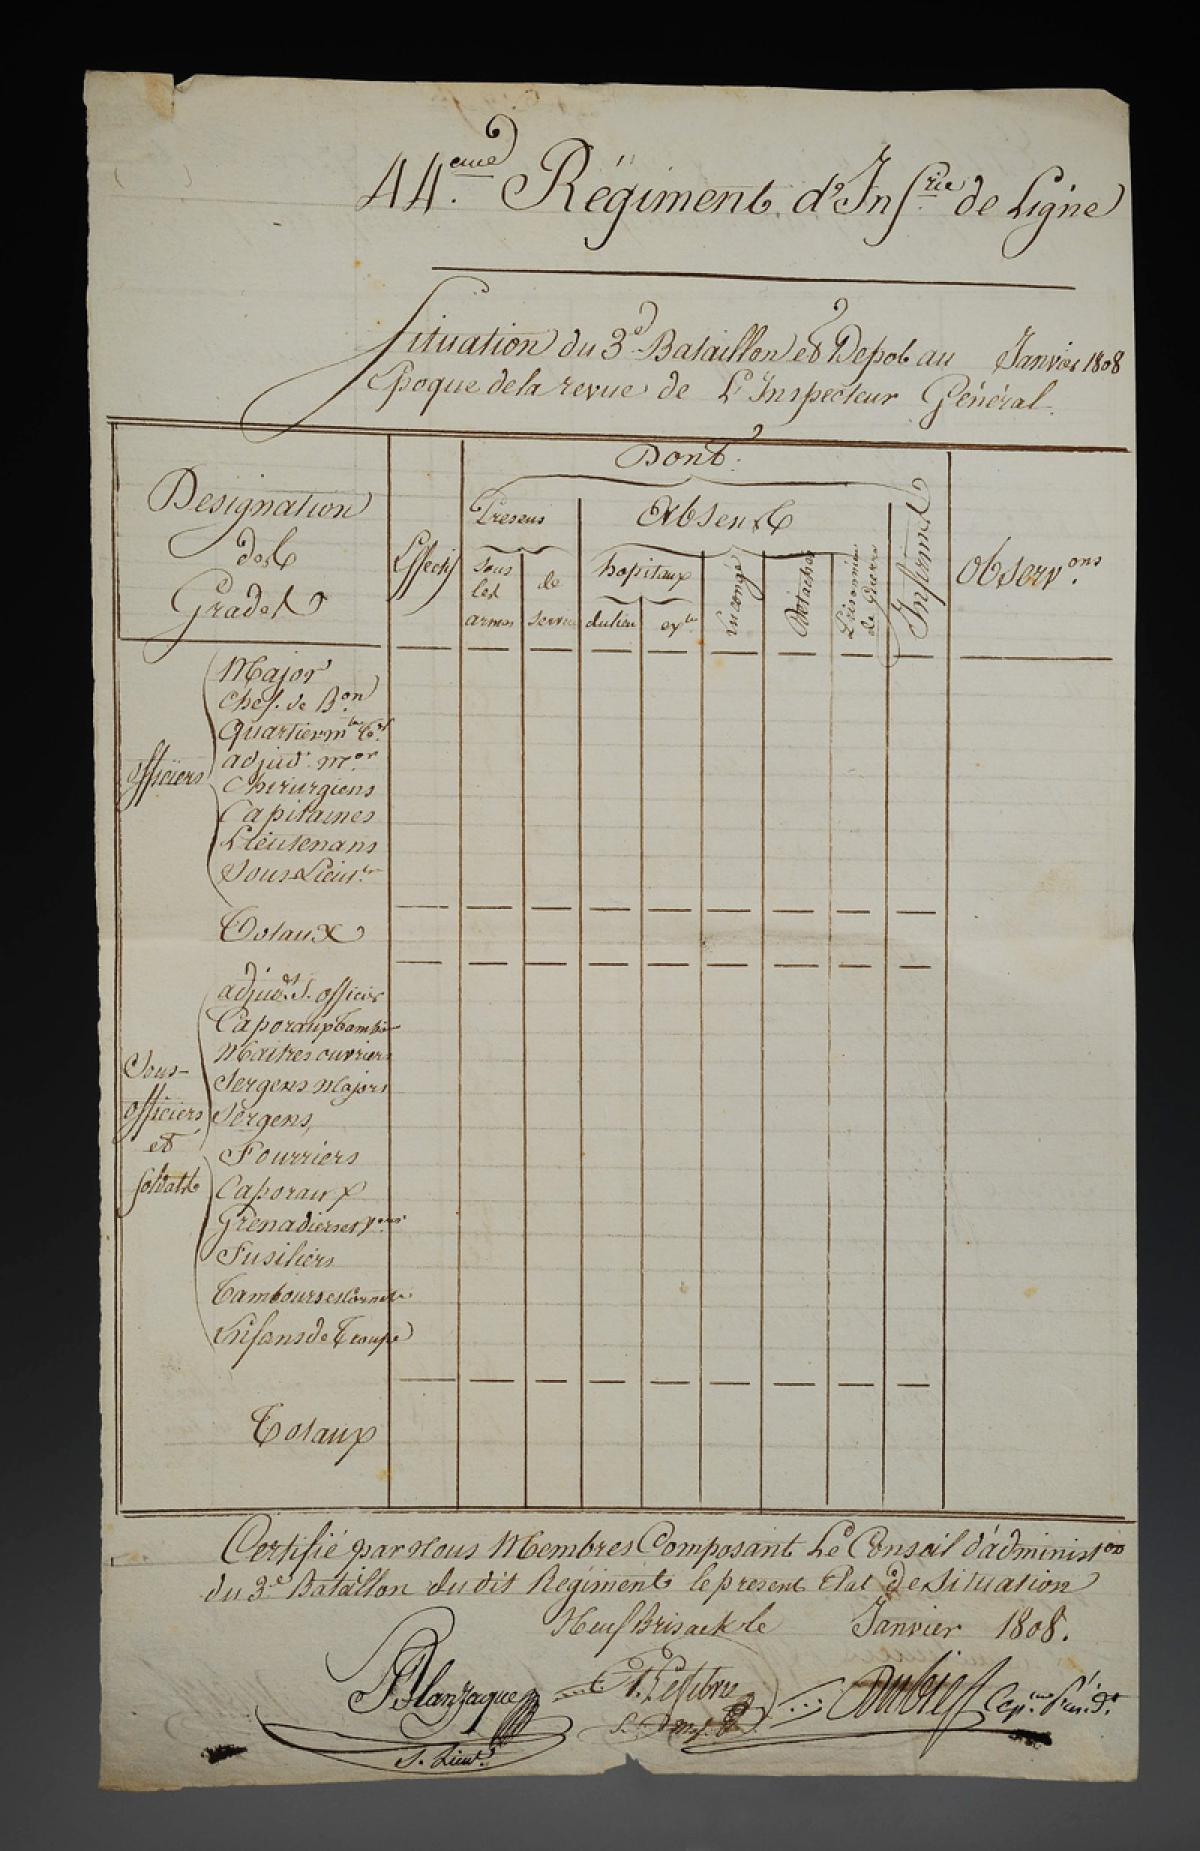 44.eme Régiment d'Inf.rie de Ligne
Situation du 3.e Bataillon et Depot au Janvier 1808
Epoque de la revue de L'Inspecteur Général.
Designation
des
Grades
Effectif
Dont.
Presens
sous
les
armes
de
service
Absens
hopitaux
du lieu
ext.
En congé
Détachés
Prisonniers
de Guerre
Infirmes
Observ.ons
Officiers
Major
Chef. de B.on
Quartier m.tre
adjud. m.or
Chirurgiens
Capitaines
Lieutenans
Sous Lieut.
Totaux
Sous-
officiers
et
soldats
adjud.s S. officier
Caporaux Tambour
Maitres ouvriers
Sergens Majors
Sergens,
Fourriers
Caporaux
Grenadiers et
Fusiliers
Tambours et Cornets
Enfans de Troupe
Totaux
Certifié par Nous Membres Composant Le Conseil d'administ.on
du 3.e Bataillon du dit Régiment le present Etat de situation
Neuf Brisack le Janvier 1808.
Blanzaque
S. Lieut.
Lefebvre